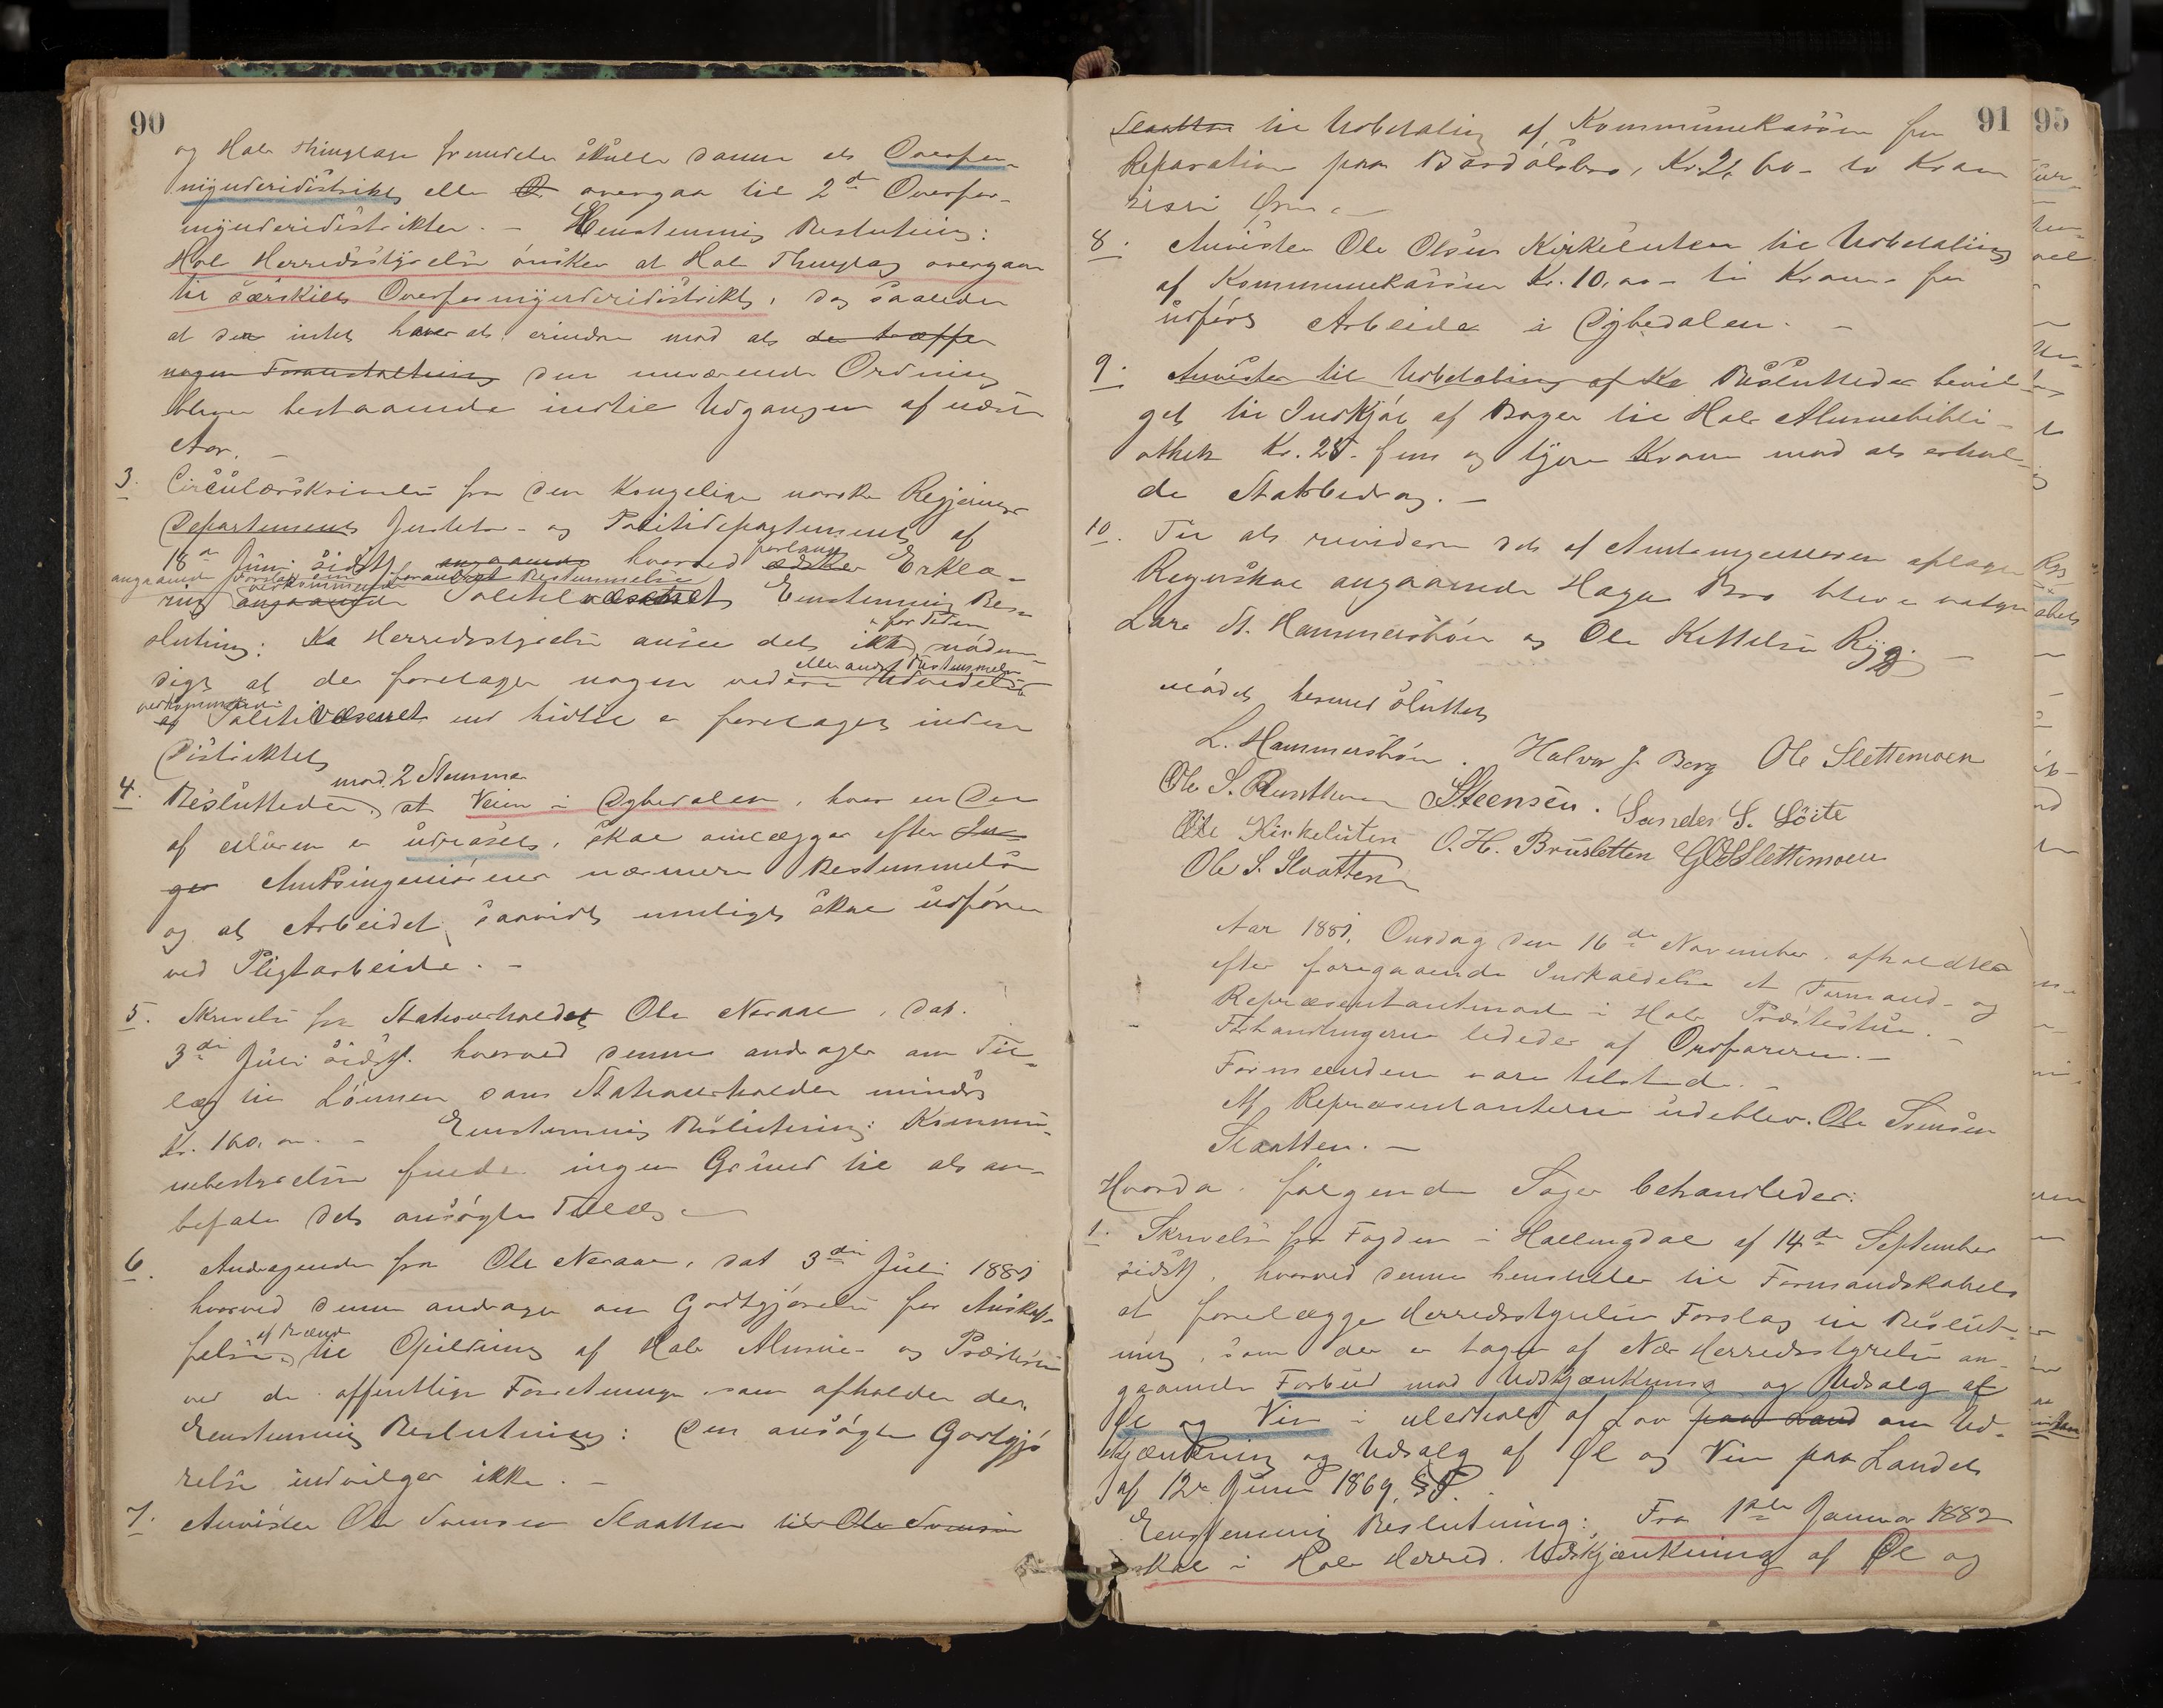 90
og Hols Thinglag fremdeles skulle danne et Overfor-
mynderidistrikt eller overgaa til 2det Overfor-
mynderidistrikter. – Eenstemmig Beslutning:
Hols Herredsstyrelse ønsker at Hols Thinglag overgaar
til særskilt Overformynderidistrikt, dog saaledes
at den intet haver at erindre mod at der træffes
nogen Foranstaltning den nuværende Ordning
bliver bestaaende indtil Udgangen af næste
Aar. –
3. Circulærskrivelse fra den Kongelige norske Regjerings
Departement Justits- og Politidepartement af
18de Juni sidstl. angaaende hvorved forlanges ædsker Erklæ-
angaaende Forslag om forandret Bestemmelse
ring angaaende vedkommende Politivæsenet Eenstemmig Bes-
slutning: Ka Herredsstyrelse anser det ikke for Tiden nødven-
digt at der foretages nogen videre Udvidelse eller andre Bestemmelser
vedkommende af Politivæsenet end hidtil er foretaget inden
Distriktet
4. Besluttedes mod 2 Stemmer, at Veien i Dybedalen, hvor en Del
af Muren er udraset, skal omlægges efter In-
ger Amtsingeniørens nærmere Bestemmelse
og at Arbeidet, saavidt muligt skal udføres
ved Pligtarbeide. –
5. Skrivelse fra Stationsholdet Ole Neraal, dat.
3die Juli sidstl. hvorved denne andrager om Til-
læg til Lønnen som Stationsholder mindst
Kr. 160,00. – Eenstemmig Beslutning: Kommu-
nebestyrelsen finder ingen Grund til at an-
befale det ansøgte Tillæg. –
6. Andragende fra Ole Neraal, dat 3die Juli 1881
hvorved denne andrager om Godtgjørelse for Anskaf-
felse af Brænde til Opildning af Hols Almue- og Præstestue
ved de offentlige Forretninger som afholdes der,
Eenstemmig Beslutning: Den ansøgte Godtgjø
relse indvilges ikke. –
7. Anvistes Ole Svensen Slaatten til Ole Svensen
91
Slaatten til Udbetaling af Kommunekassen for
Reparation paa Bardølsbro, Kr. 2,60 – to Kroner
sexti Øre. –
8. Anvistes Ole Olsen Kirkesluten til Udbetaling
af Kommunekassen Kr. 10,00 – ti Kroner for
udført Arbeide i Dybedalen. –
9. Anvistes til Udbetaling af Ko Besluttedes bevil-
get til Indkjøb af Bøger til Hols Almuebibli-
othek Kr. 25 – fem og tyve Kroner mod at erhol-
de Statsbidrag. –
10. Til at revidere det af Amtsingeniøren aflagte
Regnskab angaaende Haga Bro blev valgt
Lars A. Hammersbøen og Ole Kittelsen Rygg. –
Mødet hermed sluttet
L. Hammersbøen. Halvor J. Berg Ole Slettemoen
Ole S. Steensen. Sander S.
Ole Kirkeluten O. H. Brusletten Slettemoen
Ole S. Slaatten
Aar 1881, Onsdag den 16de November afholdtes
efter foregaaende Indkaldelse et Formands- og
Repræsentantmøde i Hols Præstestue. –
Forhandlingerne lededes af Ordføreren. –
Formændene vare tilstede. –
Af Repræsentanterne udeblev Ole Svensen
Slaatten. –
Hvorda følgende Sager behandledes:
1. Skrivelse fra Fogden i Hallingdal af 14de September
sidstl, hvorved denne henstiller til Formandskabet
at forelægge Herredsstyrelsen Forslag til Beslut-
ning, som der er tagen af Næs Herredsstyrelse an-
gaaende Forbud mod Udskjænkning og Udsalg af
Øl og Vin i Medhold af Lov paa Land om Ud-
skjænkning og Udsalg af Øl og Vin paa Landet
af 12te Juni 1869,
Eenstemmig Beslutning: Fra 1ste Januar 1882
skal i Hols Herred Udskjænkning af Øl og
95